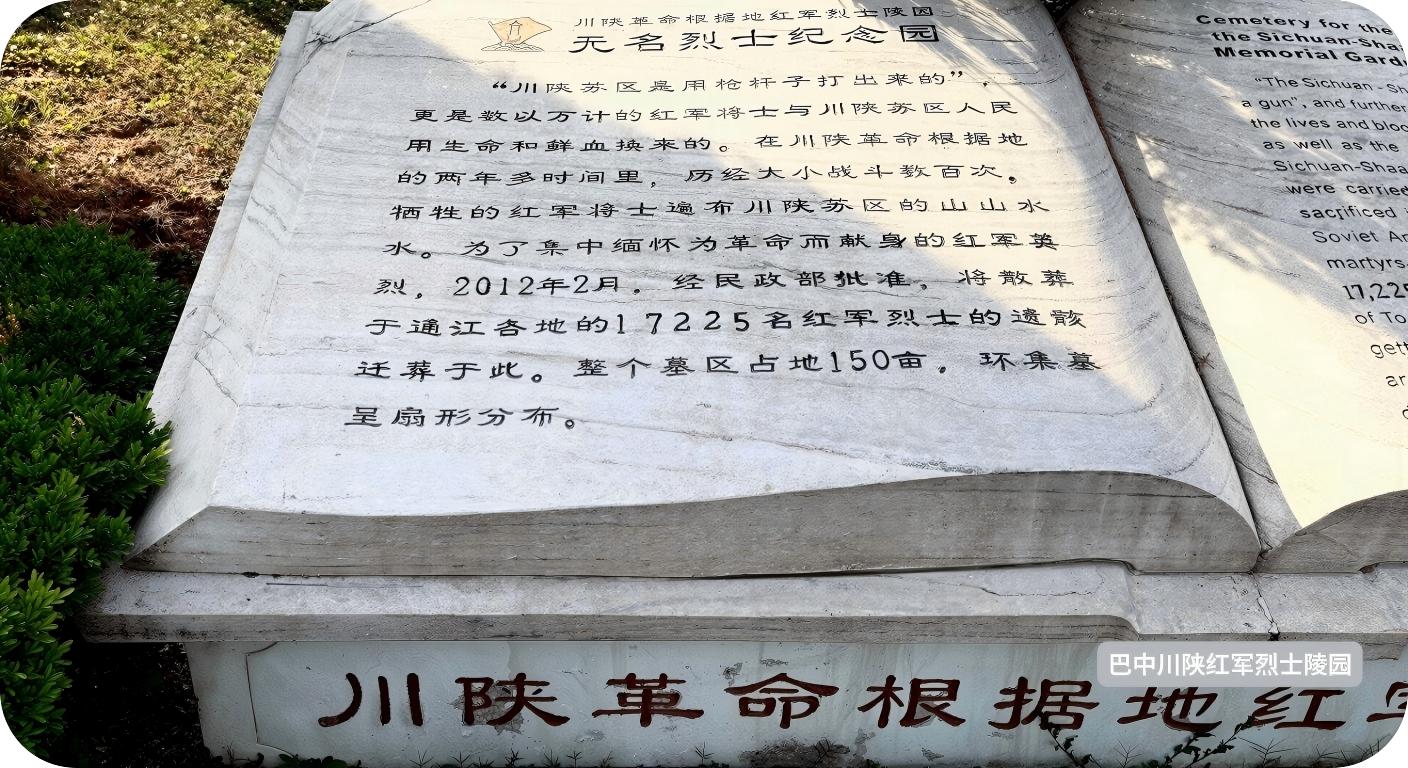 川陕革命根据地红军烈士陵园
无名烈士纪念园
“川陕苏区是用枪杆子打出来的”，
更是数以万计的红军将士与川陕苏区人民
用生命和鲜血换来的。在川陕革命根据地
的两年多时间里，历经大小战斗数百次，
牺牲的红军将士遍布川陕苏区的山山水
水。为了集中缅怀为革命而献身的红军英
烈，2012年2月，经民政部批准，将散葬
于通江各地的17225名红军烈士的遗骸
迁葬于此。整个墓区占地150亩，环集墓
呈扇形分布。
Cemetery for the
the Sichuan-Shaa
Memorial Gard
“The Sichuan-Sh
a gun”, and further
the lives and bloo
as well as the
Sichuan-Shaa
were carried
sacrificed i
Soviet Ar
martyrs
17,225
of To
gett
ar
川陕革命根据地红军
巴中川陕红军烈士陵园